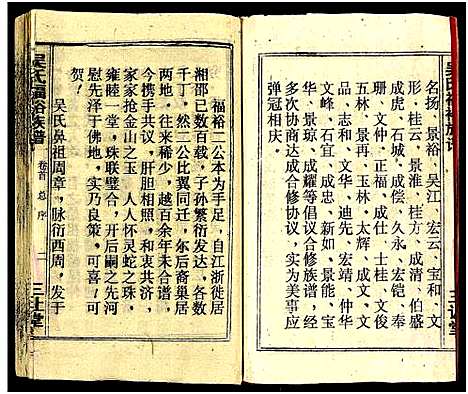 名扬、景裕、吴江、宏云、宝和、文
形、桂云、景淮、桂方、成贵、伯盛
成虎、石城、成偿、久永、宏铠、奉
珊、文仲、正福、成仕、士桂、文俊
五林、景再、玉林、太辉、成文、文
品、志和、文华、迪先、宏靖、仲华
文峰、石宜、成聪、新如、景能、景
华、景琼、成耀等倡议合修族谱，经
多次协商达成合修协议，实为美事。
福裕二公本为手足，自江浙徙居
湘邵已数百载，子孙繁衍发达，各数
千丁，然二公比翼同迁，尔后裔巢居
两地，往来稀少，越百余年未合谱，
今携手共议，肝胆相照，和衷共济，
家家抢金山之玉，人人怀灵蛇之珠，
雍睦一堂，珠联璧合，开后嗣之先河
慰先泽于佛地，实乃良策，可喜！可
贺！
吴氏鼻祖周章，脉衍西周，发于
吴氏福裕族谱
卷首
总序
一
三让堂
吴氏福裕族谱
三让堂